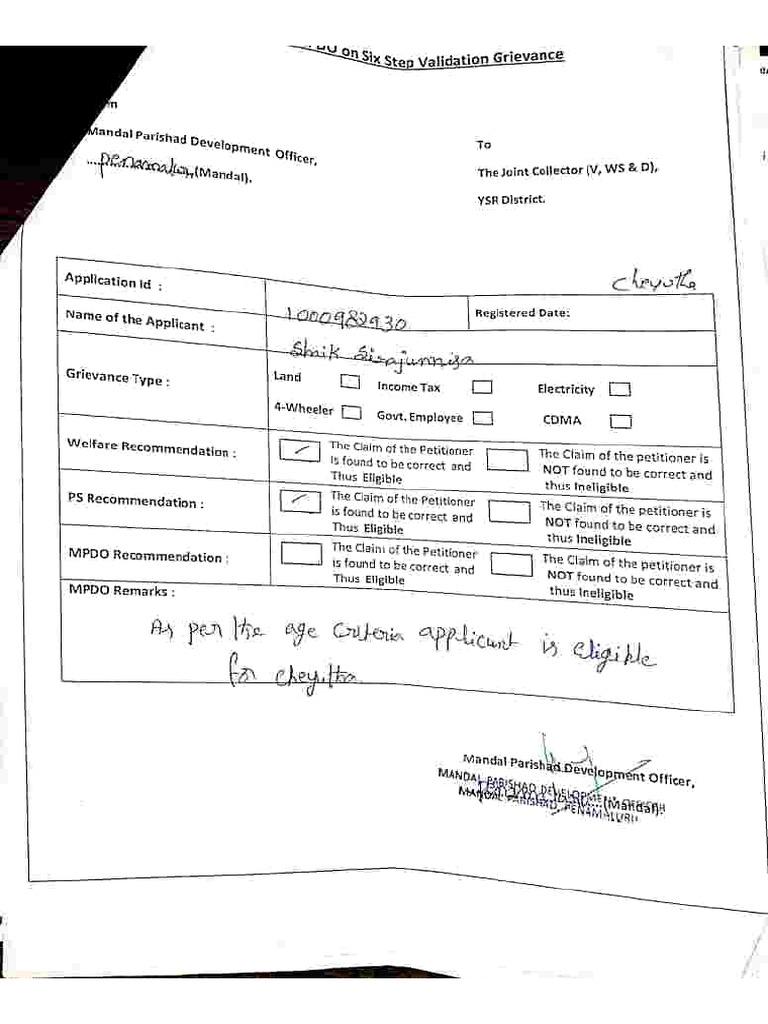 on Six Step Validation Grievance
Mandal Parishad Development Officer,
(Mandal).
To
The Joint Collector (V, WS & D),
YSR District.
Cheyutha
Application Id :
1000982930
Registered Date:
Name of the Applicant :
Shaik Sirajunnisa
Grievance Type :
Land
Income Tax
Electricity
4-Wheeler
Govt. Employee
CDMA
Welfare Recommendation :
The Claim of the Petitioner
is found to be correct and
Thus Eligible
The Claim of the petitioner is
NOT found to be correct and
thus Ineligible
PS Recommendation :
The Claim of the Petitioner
is found to be correct and
Thus Eligible
The Claim of the petitioner is
NOT found to be correct and
thus Ineligible
MPDO Recommendation :
The Claim of the Petitioner
is found to be correct and
Thus Eligible
The Claim of the petitioner is
NOT found to be correct and
thus Ineligible
MPDO Remarks :
As per the age Criteria applicant is Eligible
for cheyutha
Mandal Parishad Development Officer,
(Mandal).
MANDAL PARISHAD DEVELOPMENT OFFICER
MANDAL PARISHAD, PENAMALURU